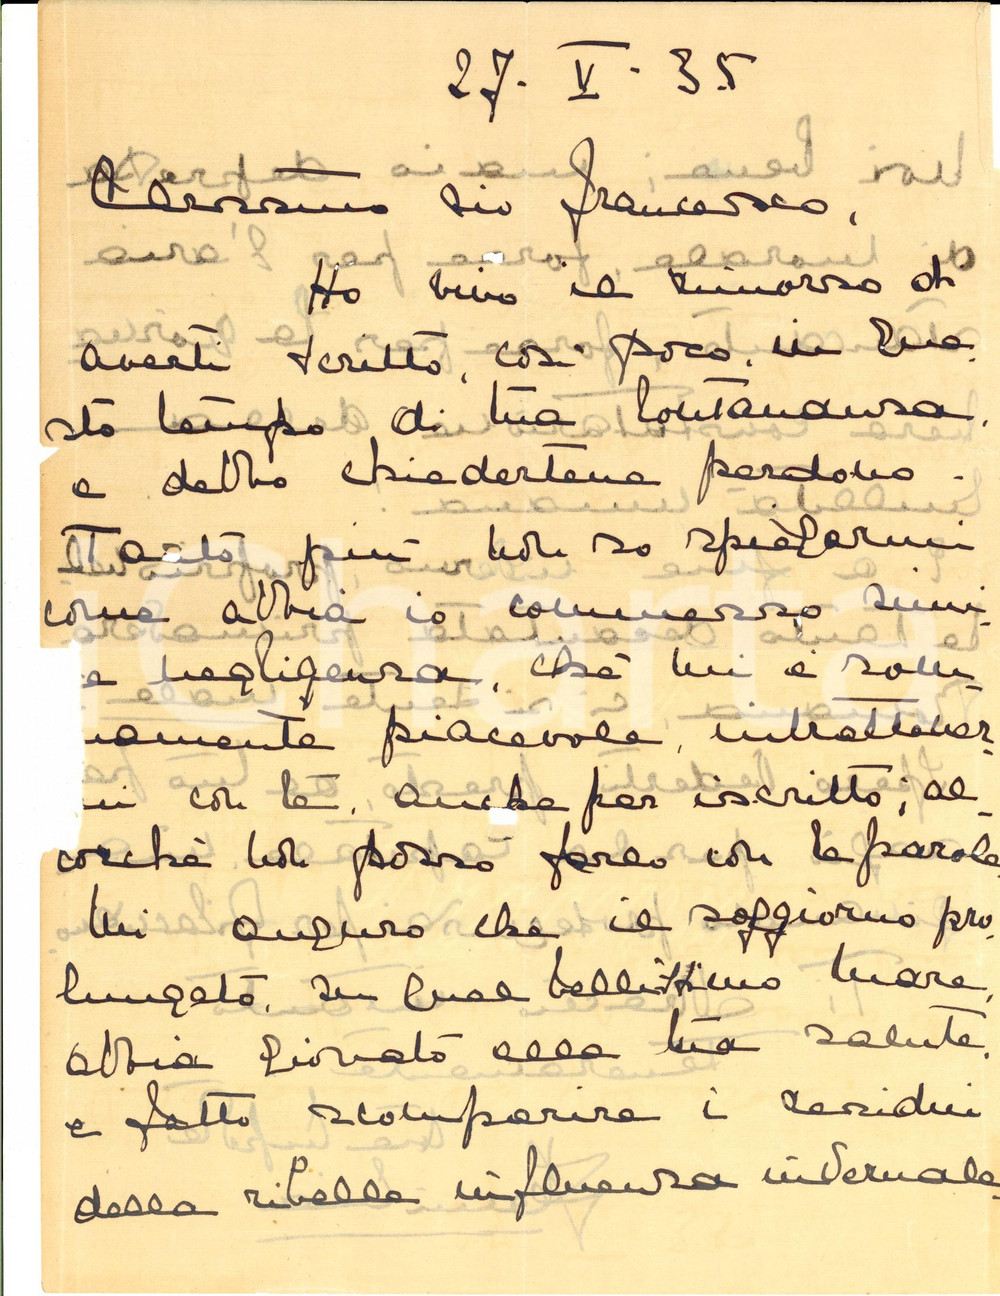 27. V. 35
Carissimo zio Francesco,
Ho vivo il rimorso di
averti scritto, così poco, in que-
sto tempo di tua lontananza,
e debbo chiedertene perdono.
Tanto più non so spiegarmi
come abbia io commesso simi-
e negligenza, chè mi è som-
mamente piacevole, intrattener-
mi con te, anche per iscritto, al-
lorchè non posso farlo con la parola.
Mi auguro che il soggiorno pro-
lungato, su quel bellissimo mare,
abbia giovato alla tua salute,
e fatto scomparire i residui
della ribelle influenza invernale.
Charta